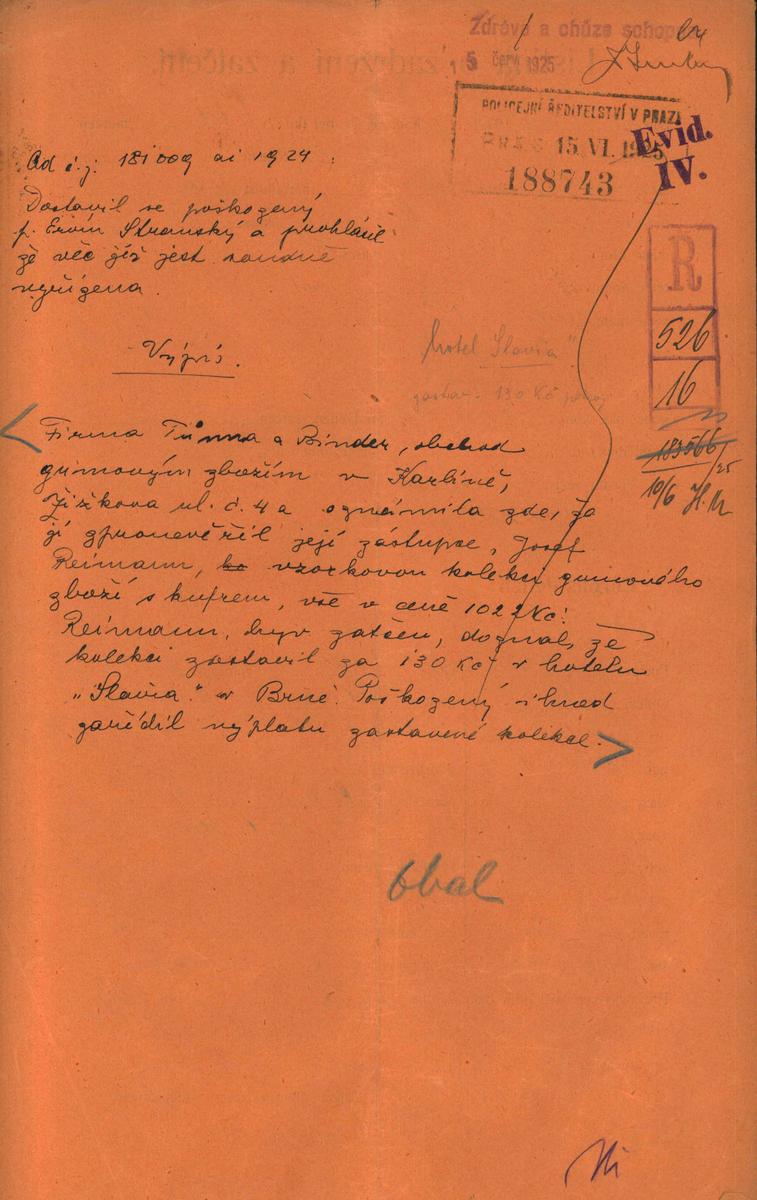 Zdráva a chůze schopna
15 červ. 1925
POLICEJNÍ ŘEDITELSTVÍ V PRAZE
15. VI. 1925
188743
Evid.
IV.
Ad č. j. 181009 ai 1924:
Dostavil se poškozený
p. Ervín Stranský a prohlásil
že věc již jest soudně
vyřízena.
R
526
16
Výpis.
hotel Slavia"
zastav. 130 Kč
183566/25
10/6
Firma Tůma a Binder, obchod
gumovým zbožím v Karlíně,
Žižkova ul. č. 4 a oznámila zde, že
jí zpronevěřil její zástupce, Josef
Reimann, vzorkovou kolekci gumového
zboží s kufrem, vše v ceně 1022 Kč.
Reimann, byv zatčen, doznal, že
kolekci zastavil za 130 Kč v hotelu
„Slavia" v Brně. Poškozený ihned
zařídil výplatu zastavené kolekce.
Obal